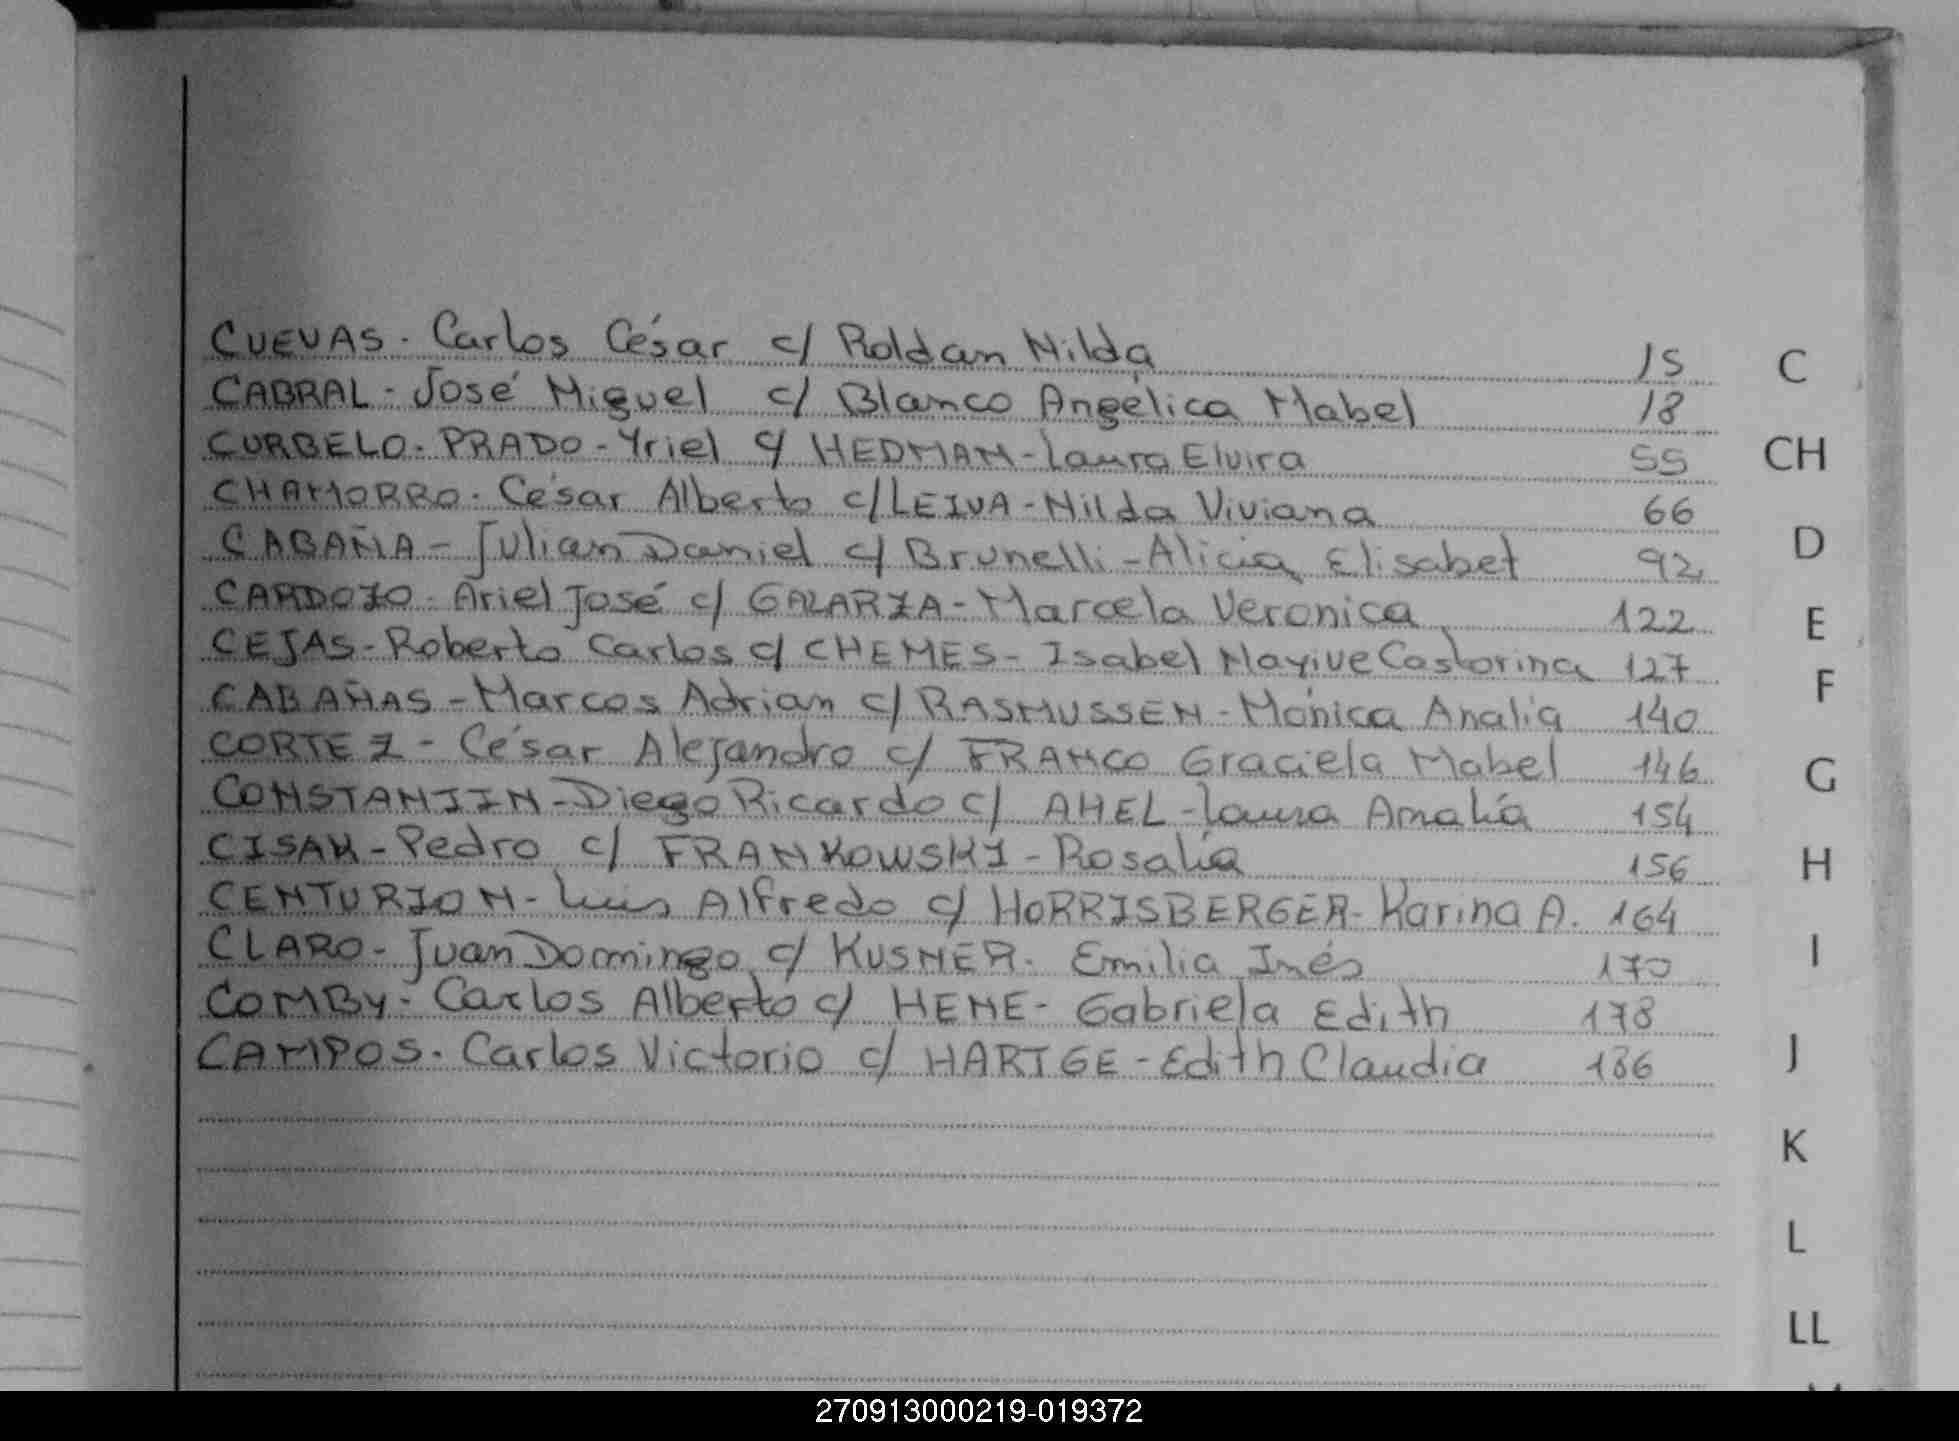 CUEVAS. Carlos César c/ Roldan Nilda 15
CABRAL - José Miguel c/ Blanco Angélica Mabel 18
CURBELO. PRADO - Yriel c/ HEDMAN - Laura Elvira 55
CHAMORRO. César Alberto c/ LEIVA - Nilda Viviana 66
CABAÑA - Julian Daniel c/ Brunelli - Alicia Elisabet 92
CARDOZO. Ariel José c/ GALARZA - Marcela Veronica 122
CEJAS - Roberto Carlos c/ CHEMES - Isabel Nayive Castorina 127
CABAÑAS - Marcos Adrian c/ RASMUSSEN - Mónica Analia 140
CORTEZ - César Alejandro c/ FRANCO Graciela Mabel 146
CONSTANTIN - Diego Ricardo c/ AHEL - Laura Amalia 154
CISAK - Pedro c/ FRANKOWSKI - Rosalia 156
CENTURION - Luis Alfredo c/ HORRISBERGER - Karina A. 164
CLARO - Juan Domingo c/ KUSNER. Emilia Inés 170
COMBY. Carlos Alberto c/ HENE - Gabriela Edith 178
CAMPOS. Carlos Victorio c/ HARTGE - Edith Claudia 186
C
CH
D
E
F
G
H
I
J
K
L
LL
270913000219-019372